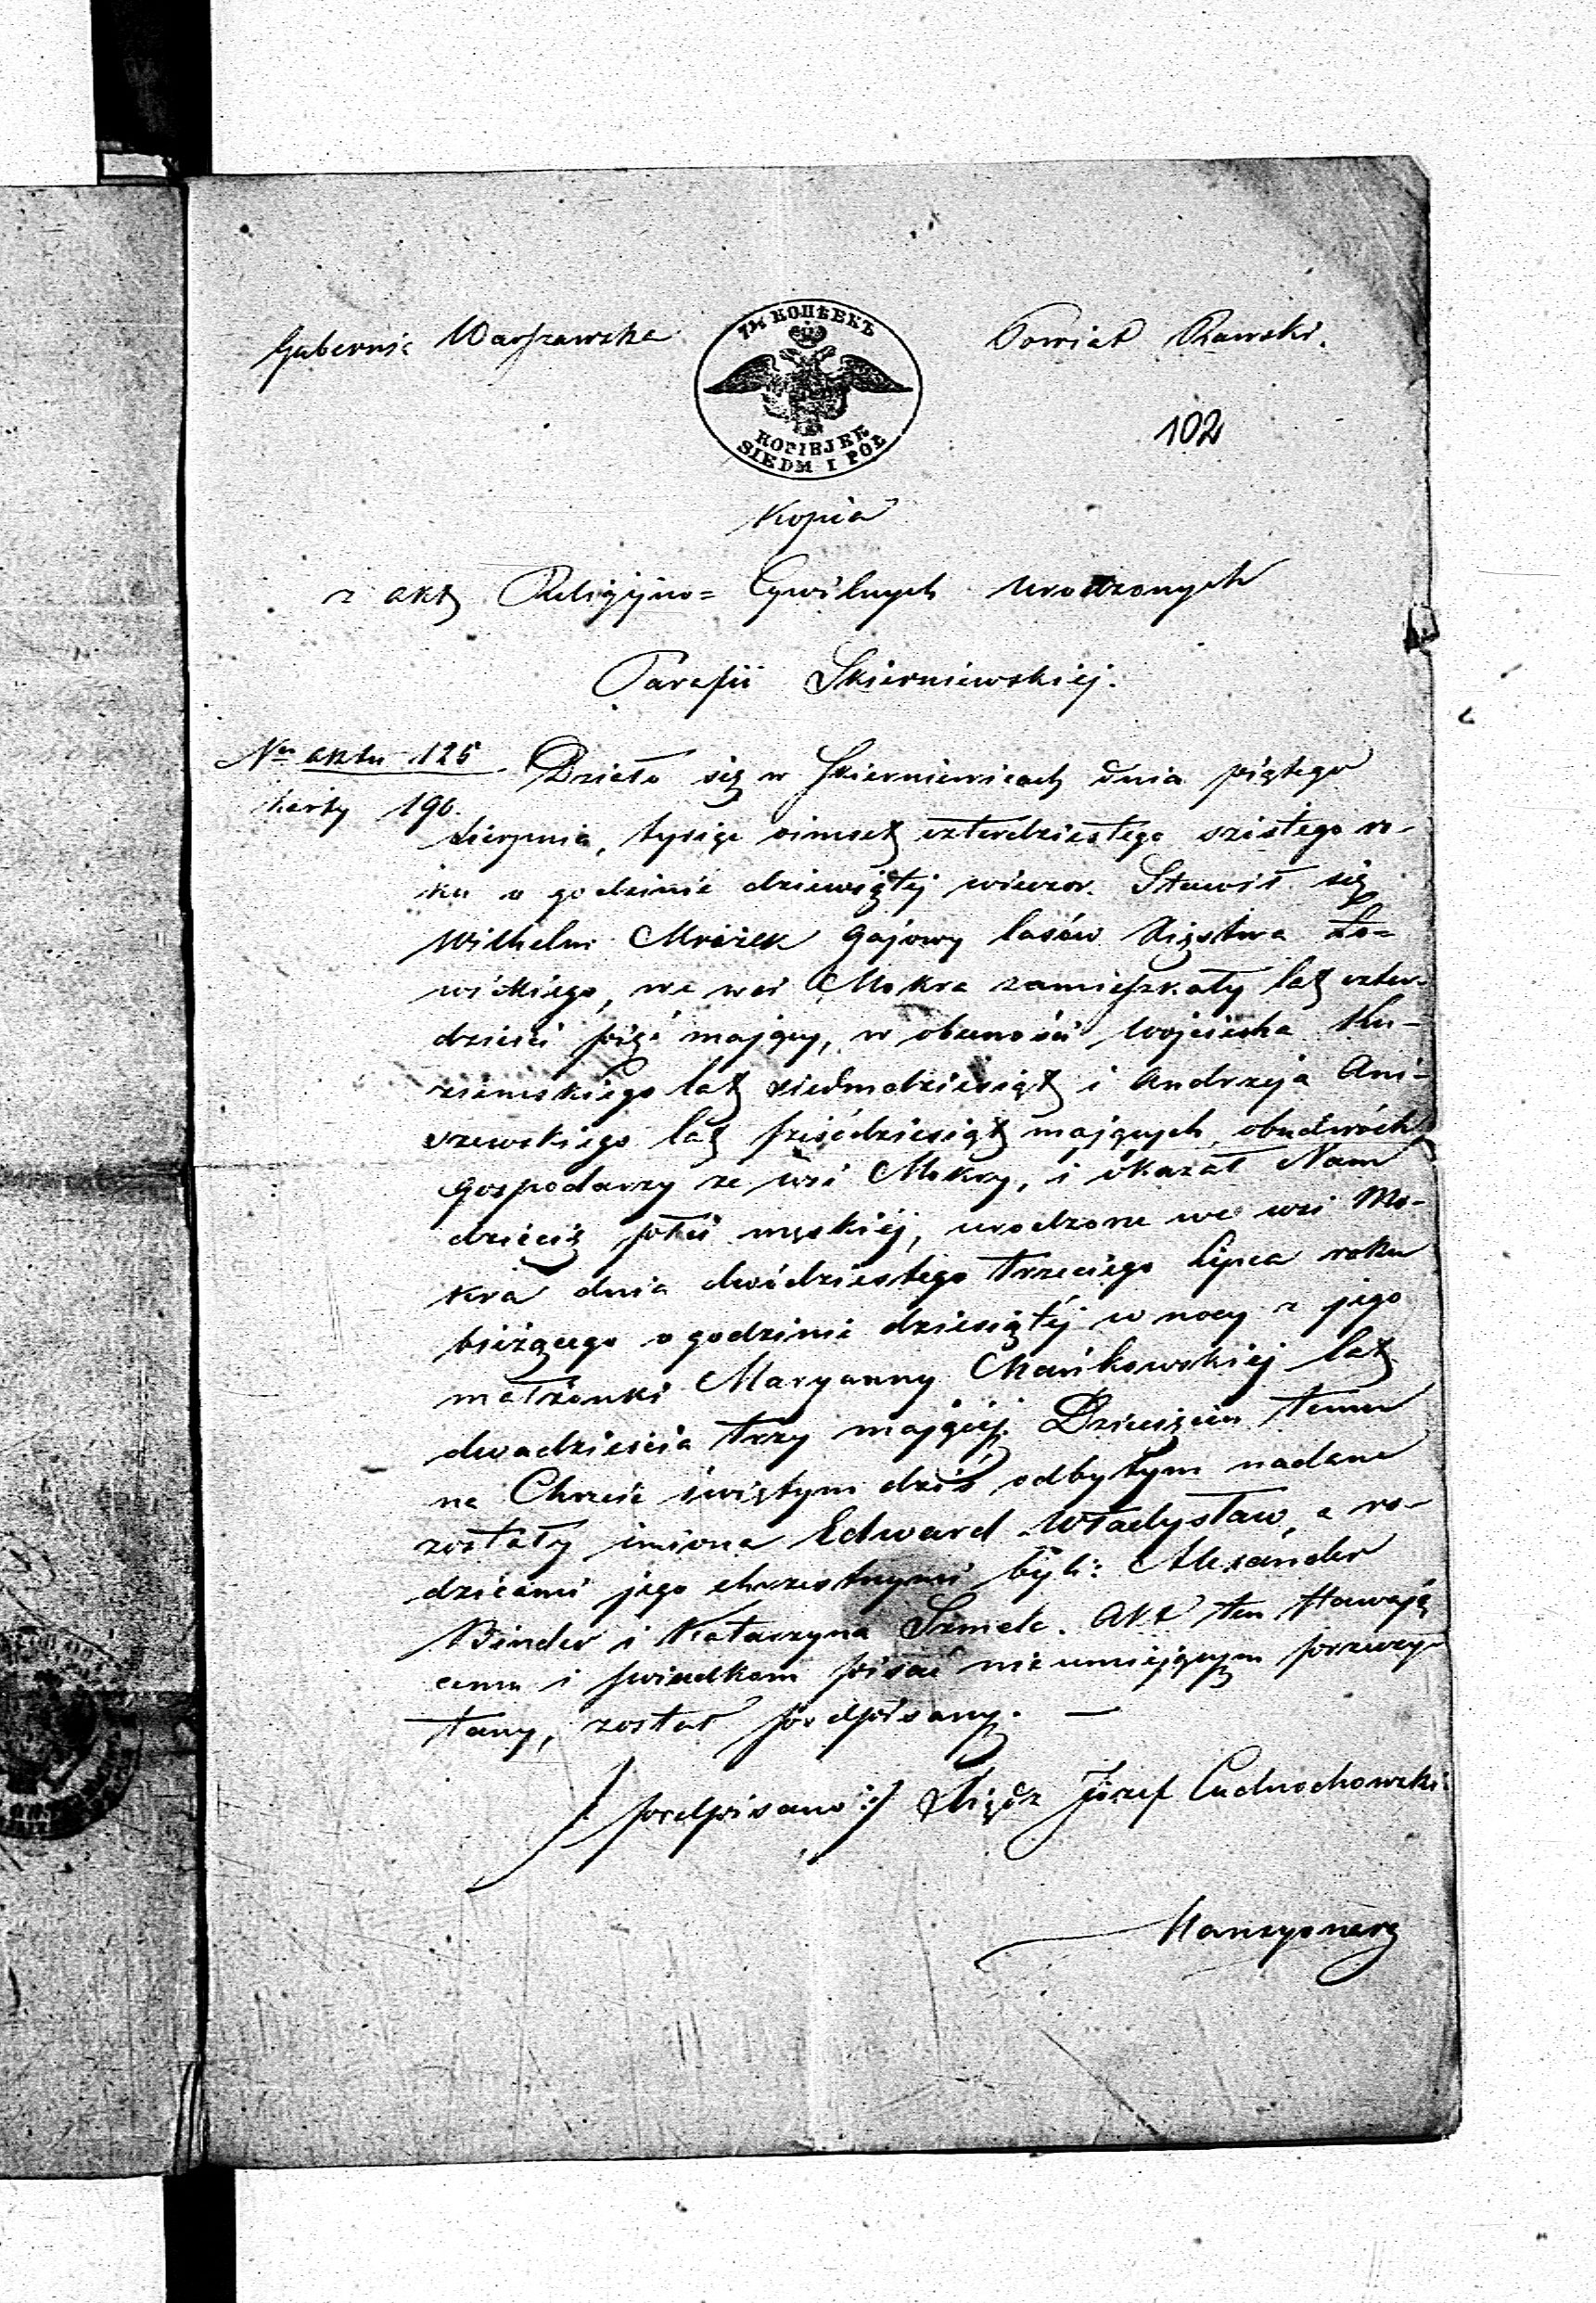 Gubernia Warszawska
7½ КОПѢЕКЪ
KOPIEJEK
SIEDM I PÓŁ
Powiat Rawski.
102
Kopia
z akt Religijno= Cywilnych urodzonych
Parafii Skierniewskiej.
Nr aktu 125
karty 190.
Działo się w Skierniewicach dnia piątego
Sierpnia, tysiąc ośmset czterdziestego szóstego ro-
ku o godzinie dziewiątej wieczor. Stawił się
Wilhelm Mrożek Gajowy lasów Xięstwa Ło-
wickiego, we wsi Mokra zamieszkały lat czter-
dzieści pięć mający, w obecności Wojciecha
lat siedmdziesiąt i Andrzeja Ani-
szewskiego lat sześćdziesiąt mających, obudwóch
gospodarzy ze wsi Mokry, i okazał Nam
dziecię płci męskiéj, urodzone we wsi Mo-
kra dnia dwódziestego trzeciego Lipca roku
bieżącego o godzinie dziesiątéj w nocy z jego
małżonki Maryanny Chańkowskiej lat
dwadzieścia trzy mającéj. Dziecięciu temu
na Chrzcie świętym dziś odbytym nadane
zostały imiona Edward Władysław, a ro-
dzicami jego chrzestnymi byli: Alexander
Binder i Katarzyna Szmelc. Akt ten stawają
cemu i świadkom pisać nieumiejącym przeczy-
tany, został podpisany. —
/: podpisano :/ Xiądz Józef Cudnochowski
Mansyonarz